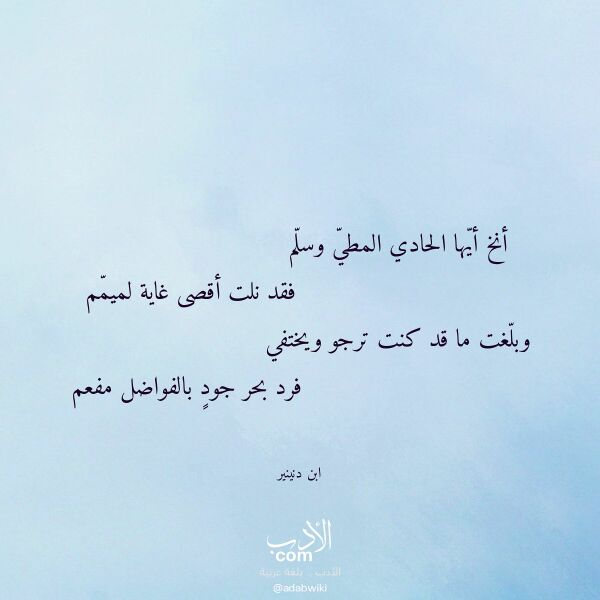 أنخ أيّها الحادي المطيّ وسلّم
فقد نلت أقصى غاية لميمّم
وبلّغت ما قد كنت ترجو ويختفي
فرد بحر جودٍ بالفواضل مفعم
ابن دنينير
الأدب
com
الأدب .. بلغة عربية
@adabwiki